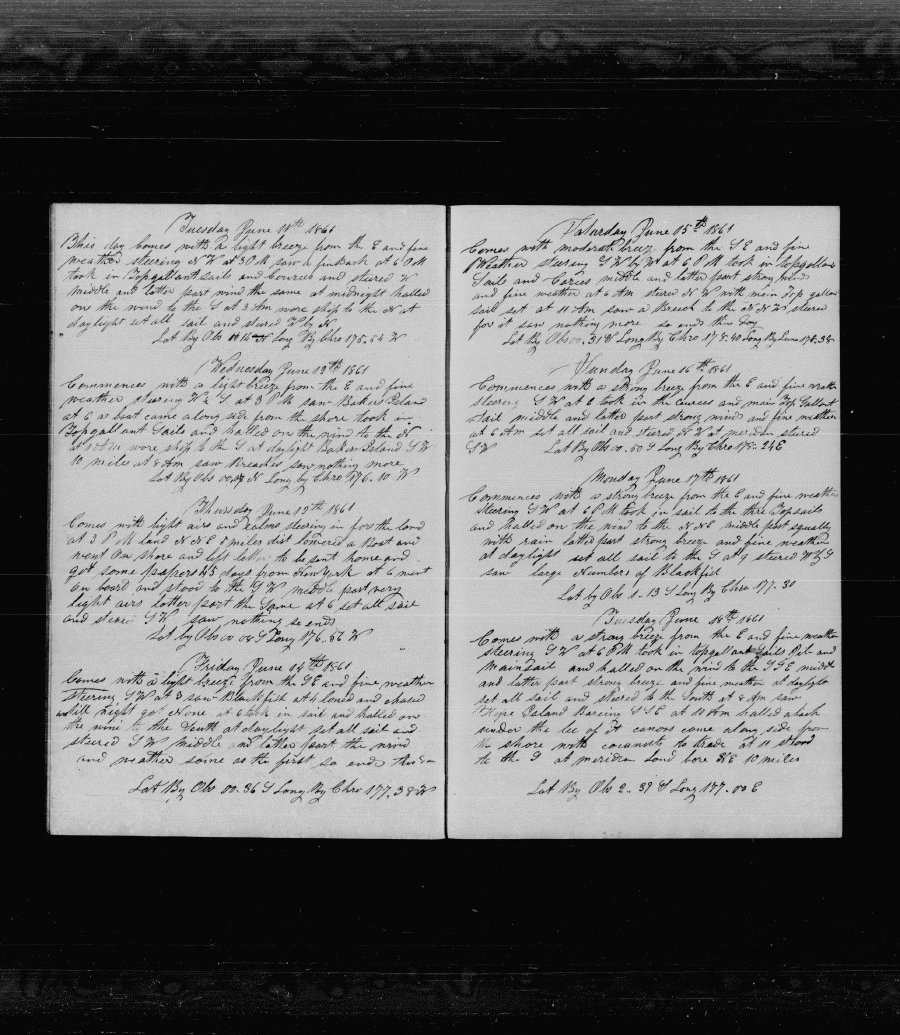 Tuesday June 11th 1861
This day Comes with a light breeze from the E and fine
weather steering N W at 3 P M saw a finback at 6 P M
took in Topgallant sails and Cources and steered W
middle and latter part wind the same at midnight halled
on the wind to the S at 3 Am wore ship to the N at
daylight set all sail and steered W by N
Lat By Obs 00 14 N Long By Chro 175.54 W
Wednesday June 12th 1861
Commences with a light breeze from the E and fine
weather steering W & S at 3 P M saw Bakers Island
at 6 a boat came along side from the shore took in
Topgallant Sails and halled on the wind to the N
at Am wore ship to the S at daylight Bakers Island S W
10 miles at 8 Am saw Breaches saw nothing more
Lat By Obs 00 N Long by Chro 176.10 W
Thursday June 13th 1861
Comes with light airs and Calms steering in for the land
at 3 P M land N N E 8 miles dist lowered a Boat and
went On shore and left letters to be sent home and
got some papers 45 days from New York at 6 went
on board and stood to the S W middle part very
light airs latter part the Same at 6 set all sail
and steered S W saw nothing so ends
Lat by Obs 00 04 S Long 176.56 W
Friday June 14th 1861
Comes with a light breeze from the S E and fine weather
Steering S W at 3 saw Blackfish at 4 lowred and chased
till night got None at 6 took in sail and halled on
the wind to the South at daylight set all sail and
steered S W middle and latter part the wind
and weather same as the first so ends this
Lat By Obs 00.36 S Long By Chro 177.38 W
Saturday June 15th 1861
Comes with moderate breeze from the S E and fine
Weather steering S W by W at 6 P M took in topgallant
Sails and Corces middle and latter part strong wind
and fine weather at 6 Am steered N W with main Top gallant
sail set at 11 Am saw a Breech to the N N W steered
for it saw nothing more so ends this Day
Lat By Obs 00.31 S Long By Chro 178.40 Long By Luna 178.38
Sunday June 16th 1861
Commences with a strong breeze from the E and fine weather
steering S W at 6 took in the Courses and main Top Gallant
Sail middle and latter part strong wind and fine weather
at 6 Am set all sail and steered N W at meridian steered
S W Lat By Obs 00.50 S Long By Chro 178.24 E
Monday June 17th 1861
Commences with a strong breeze from the E and fine weather
Steering S W at 6 P M took in sail to the three Topsails
and halled on the wind to the N N E middle part squally
with rain latter part strong breeze and fine weather
at daylight set all sail to the S at 9 steered W by S
saw large Numbers of Blackfish
Lat by Obs 1.13 S Long By Chro 177.30
Tuesday June 18th 1861
Comes with a strong breeze from the E and fine weather
steering S W at 6 P M took in topgallant Sails Jib and
mainsail and halled on the wind to the S S E middle
and latter part strong breeze and fine weather at daylight
set all sail and steered to the South at 8 Am saw
Hope Island Bearing S S E at 10 Am halled aback
under the lee of it canoes came along side from
the shore with cocanuts to trade at 11 stood
to the S at meridian Land bore N E 10 miles
Lat By Obs 2.39 S Long 177.00 E